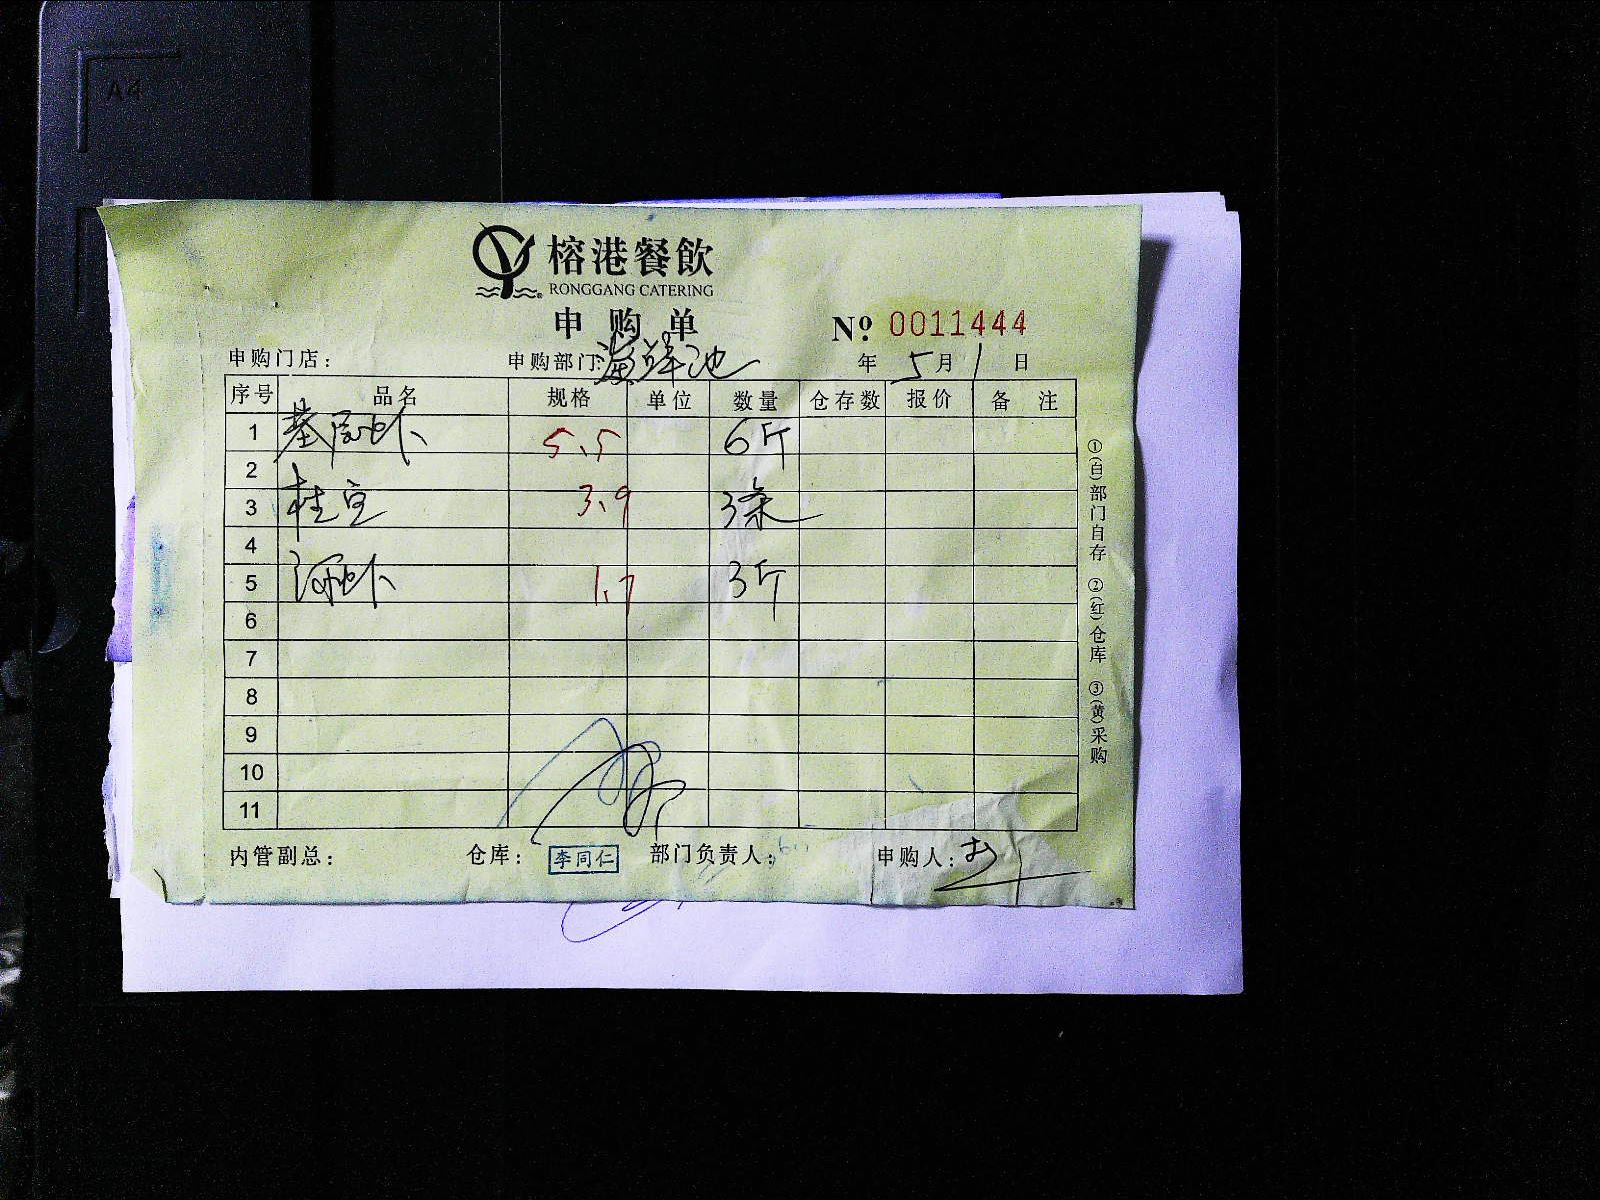 A4
榕港餐飲
RONGGANG CATERING
申购单
№ 0011444
申购门店： 申购部门：海鲜池 年 5月1日
序号 品名 规格 单位 数量 仓存数 报价 备 注
1 基围虾 5.5 6斤
2
3 桂鱼 3.9 3条
4
5 河虾 1.7 3斤
6
7
8
9
10
11
内管副总： 仓库： 李同仁 部门负责人： 申购人：
①(白)部门自存 ②(红)仓库 ③(黄)采购